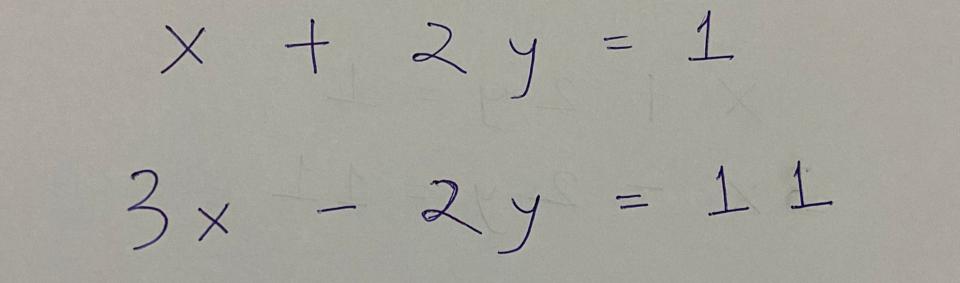 x + 2y = 1
3x - 2y = 11